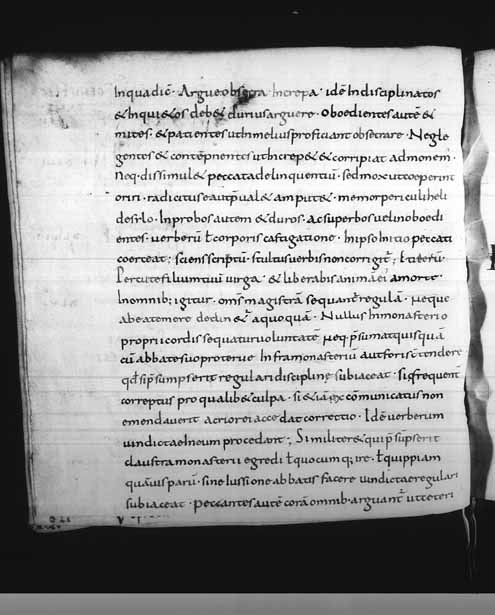 In qua dic̄ · Argue obsecra increpa · idē Indisciplinatos
& Inqui&os deb& durius arguere · Oboedientes autē &
mites · & patientes ut In melius proficiant obsecrare · Negle
gentes & contēpnentes ut Increp& & corripiat admonem̄ ·
Neq · dissimul& peccata delinquentiū · sed mox ut coeperint
oriri · radicitus ea ut p̄ual& amput& · memor periculi heli
de silo · Inprobos autem & duros · ac superbos uel inoboedi
entes · uerberū ł corporis castigatione · In ipso Initio peccati
coerceat ; sciens scriptū · stultus uerbis non corrigit̄ ; & iterū
Percute filium tuū uirga · & liberabis animā ei' a morte ·
In omnib; igitur · om̄s magistrā sequant̄ regulā · neque
ab ea temere declin&̄ a quoquā · Nullus In monasterio
proprii cordis sequatur uoluntatē neq p̄sumat quisquā
cū abbate suo proterue Infra monasteriū aut foris cōtendere
qđ si p̄sumpserit regulari discipline subiaceat · Si frequent̄
correptus pro qualib& culpa · si &iā excōmunicatus non
emendauerit acrior ei accedat correctio · Idē uerberum
uindicta In eum procedant ; Similiter & qui p̄supserit
claustra monasterii egredi ł quocumq; ire · ł quippiam
quāuis paruū · sine Iussione abbatis facere uindictae regulari
subiaceat · Peccantes autē corā omnib · arguant̄ ut ceteri